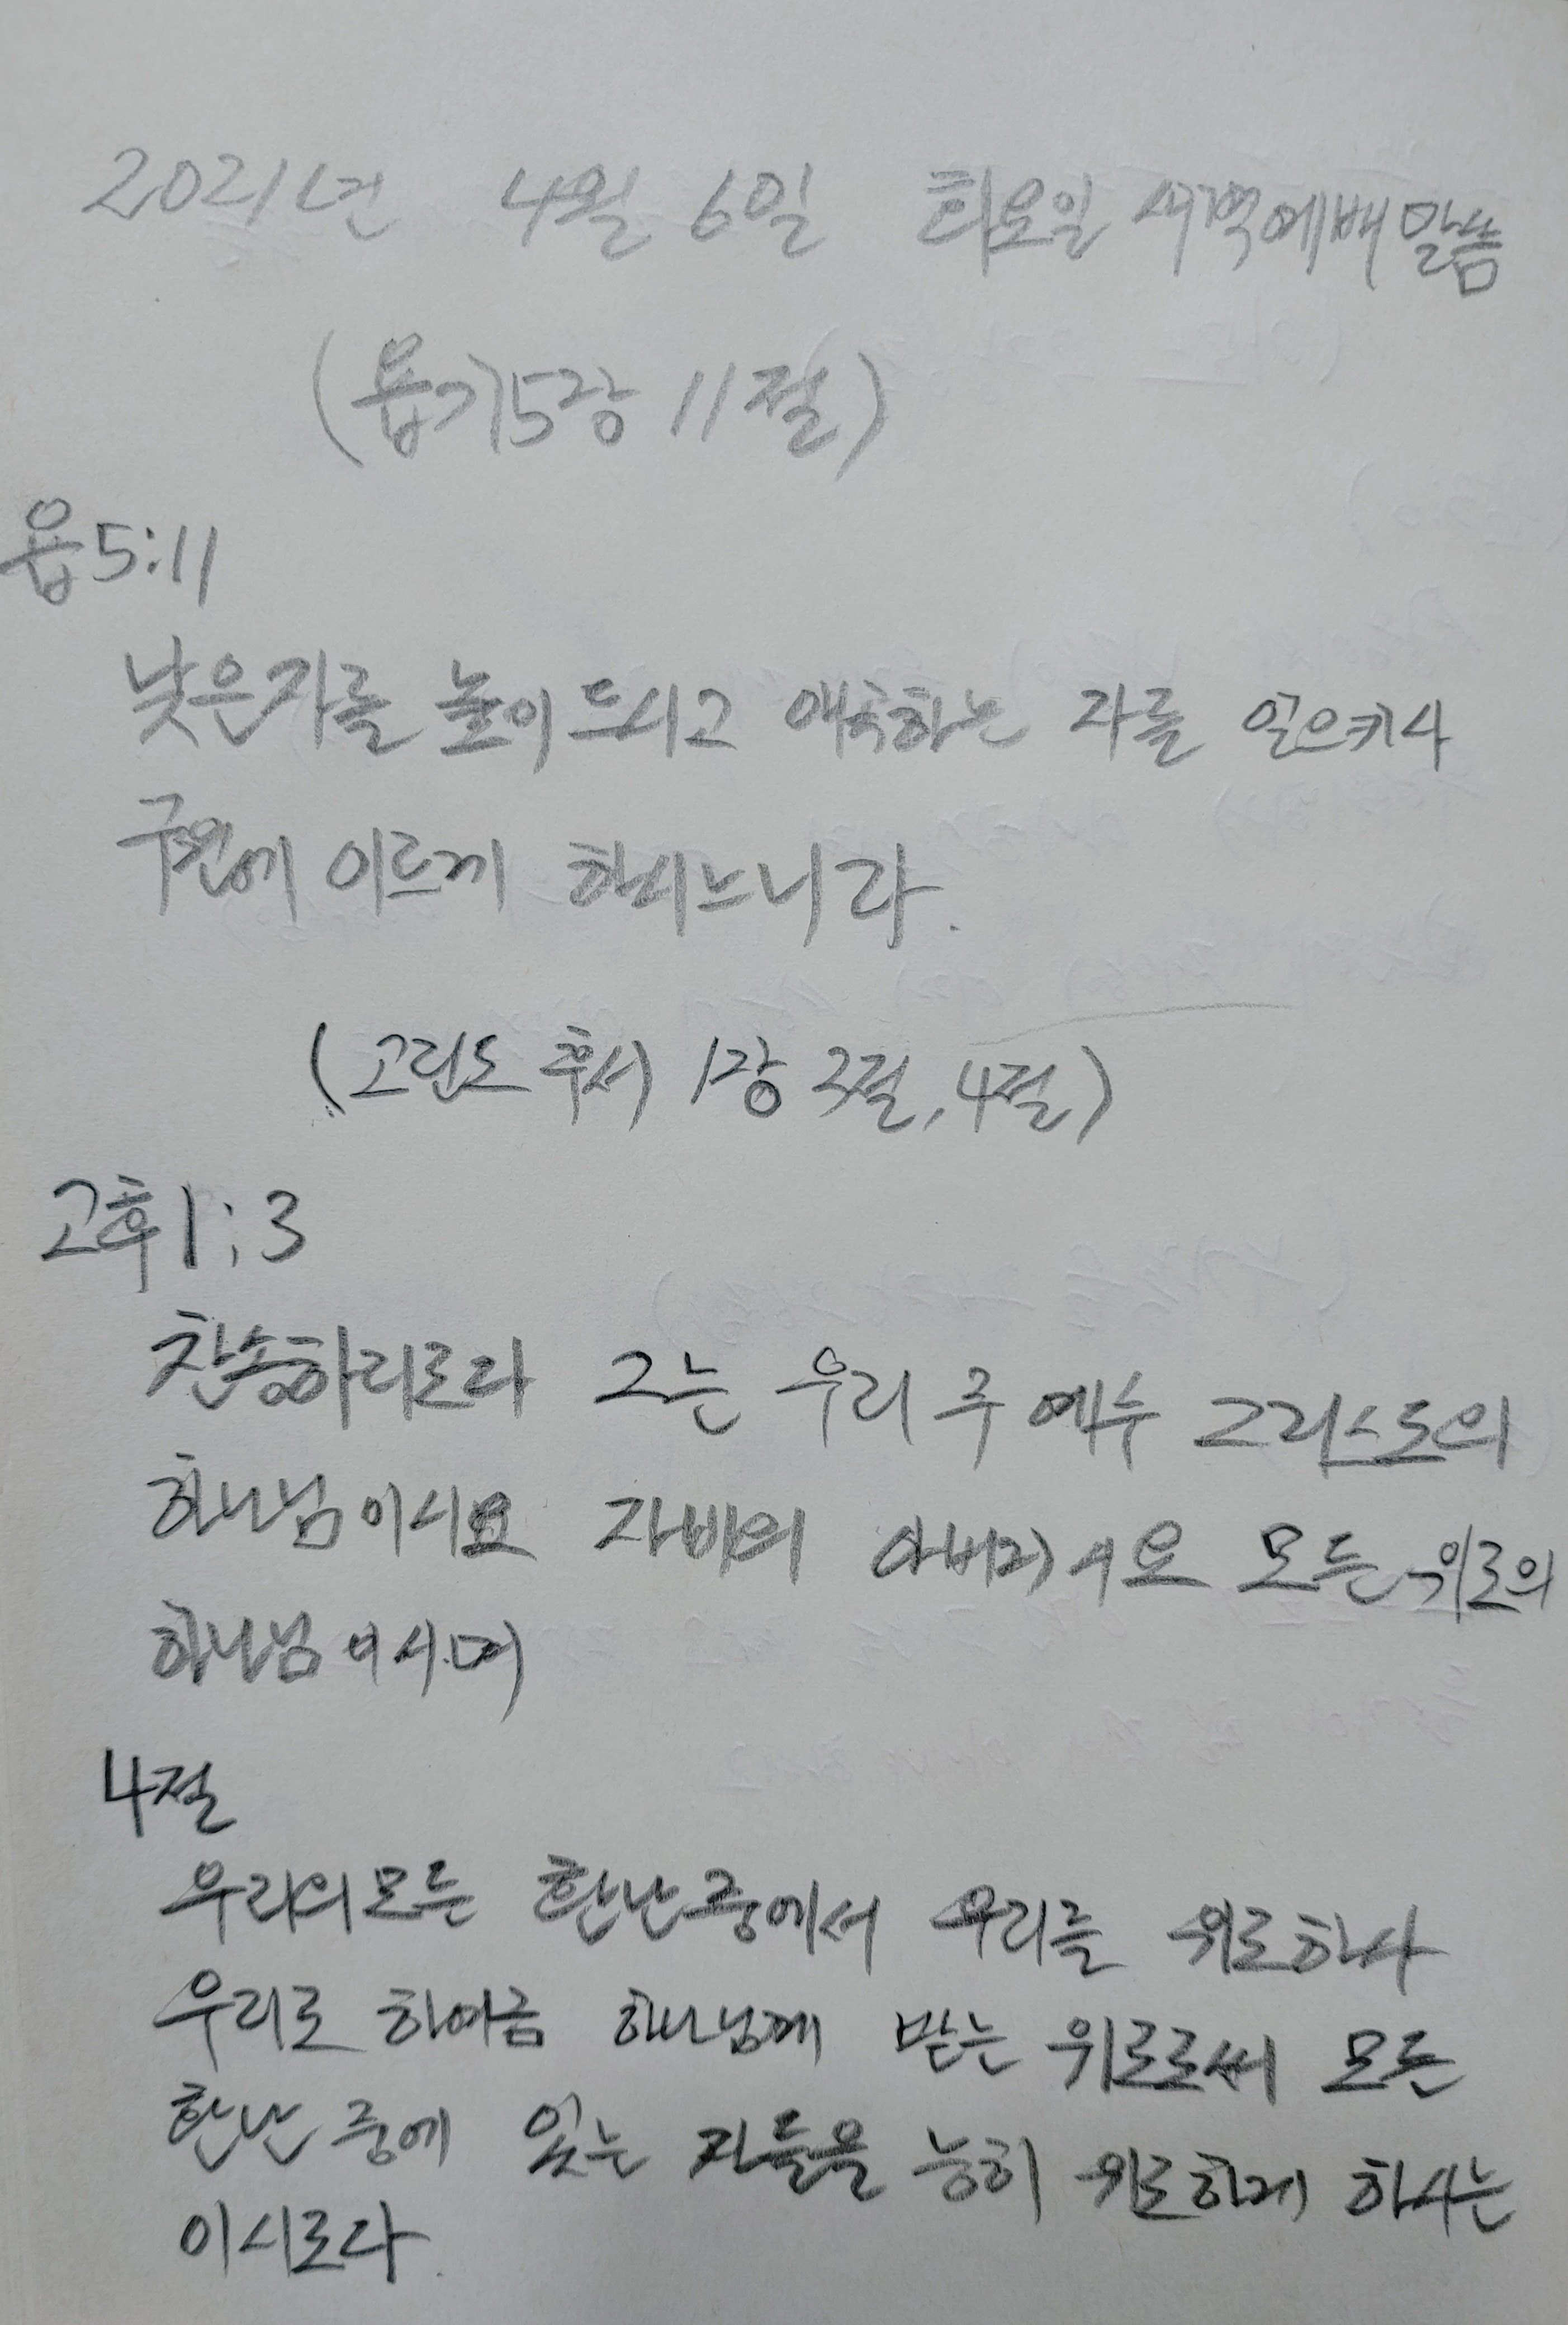 2021년 4월 6일 화요일 새벽예배 말씀
(욥기5장 11절)
욥5:11
낮은자를 높이 드시고 애곡하는 자를 일으키사
구원에 이르게 하시느니라.
(고린도 후서 1장 3절, 4절)
고후1:3
찬송하리로다 그는 우리 주 예수 그리스도의
하나님이시요 자비의 아버지시요 모든 위로의
하나님이시며
4절
우리의 모든 환난중에서 우리를 위로하사
우리로 하여금 하나님께 받는 위로로써 모든
환난 중에 있는 자들을 능히 위로하게 하시는
이시로다.